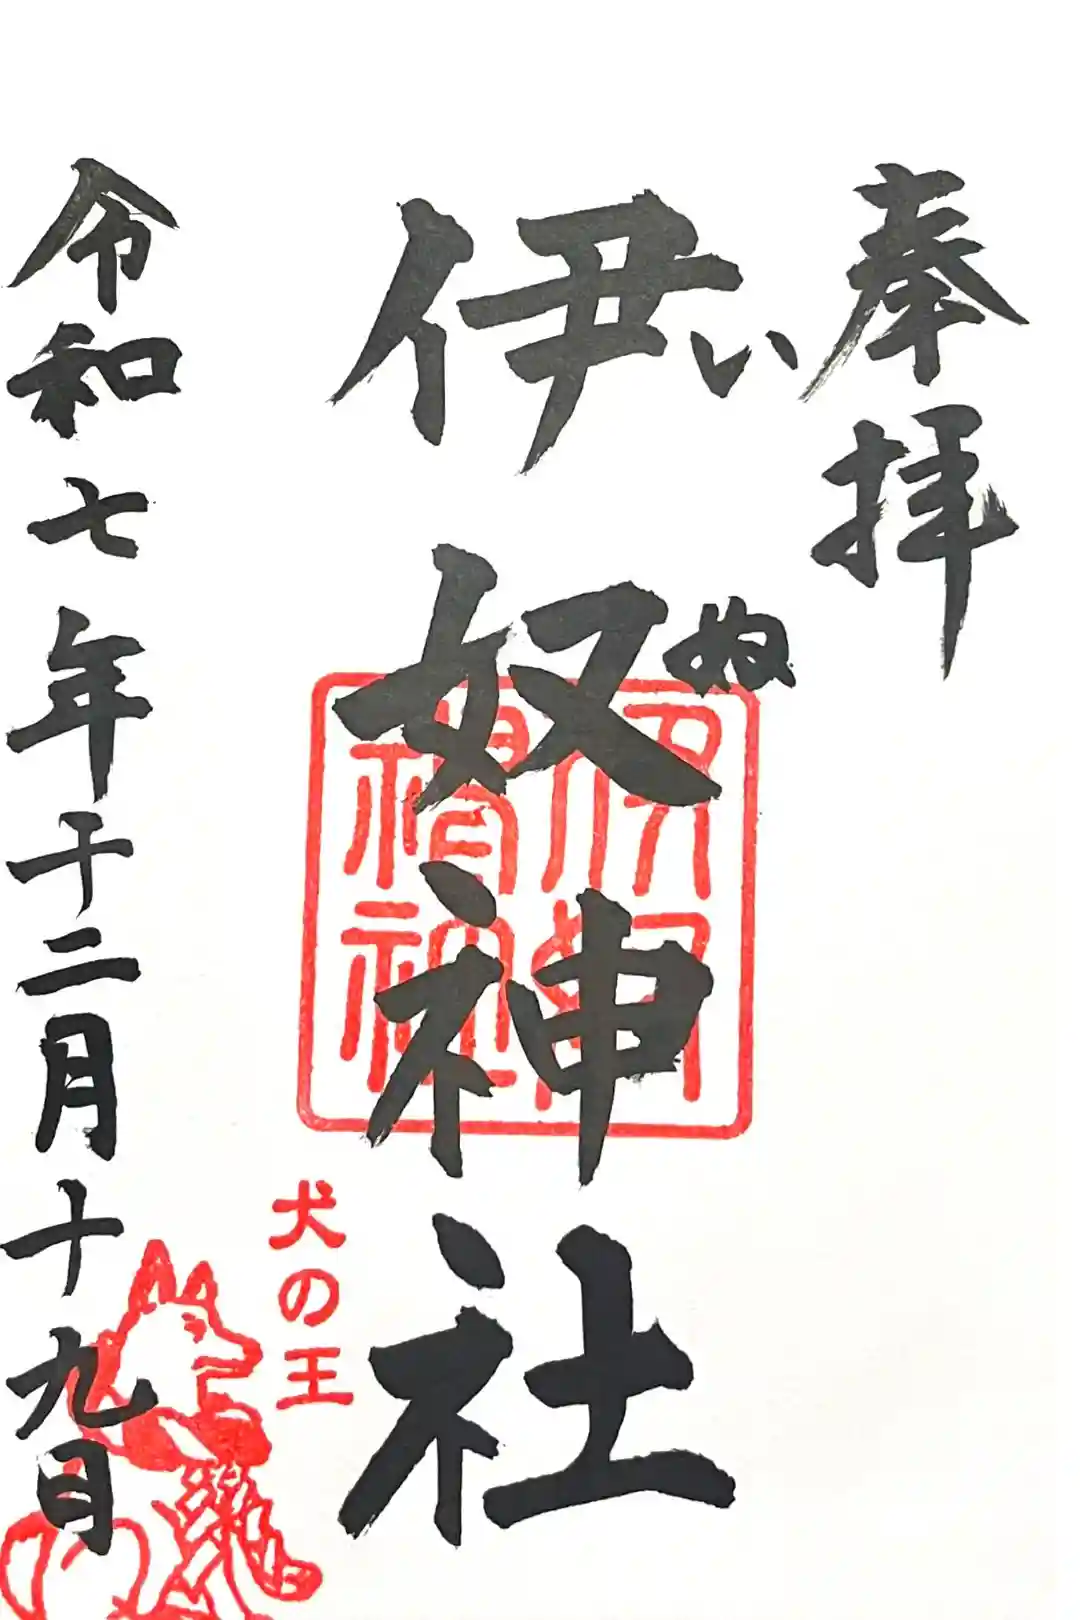 奉拝
いぬ
伊奴神社
犬の王
令和七年十二月十九日